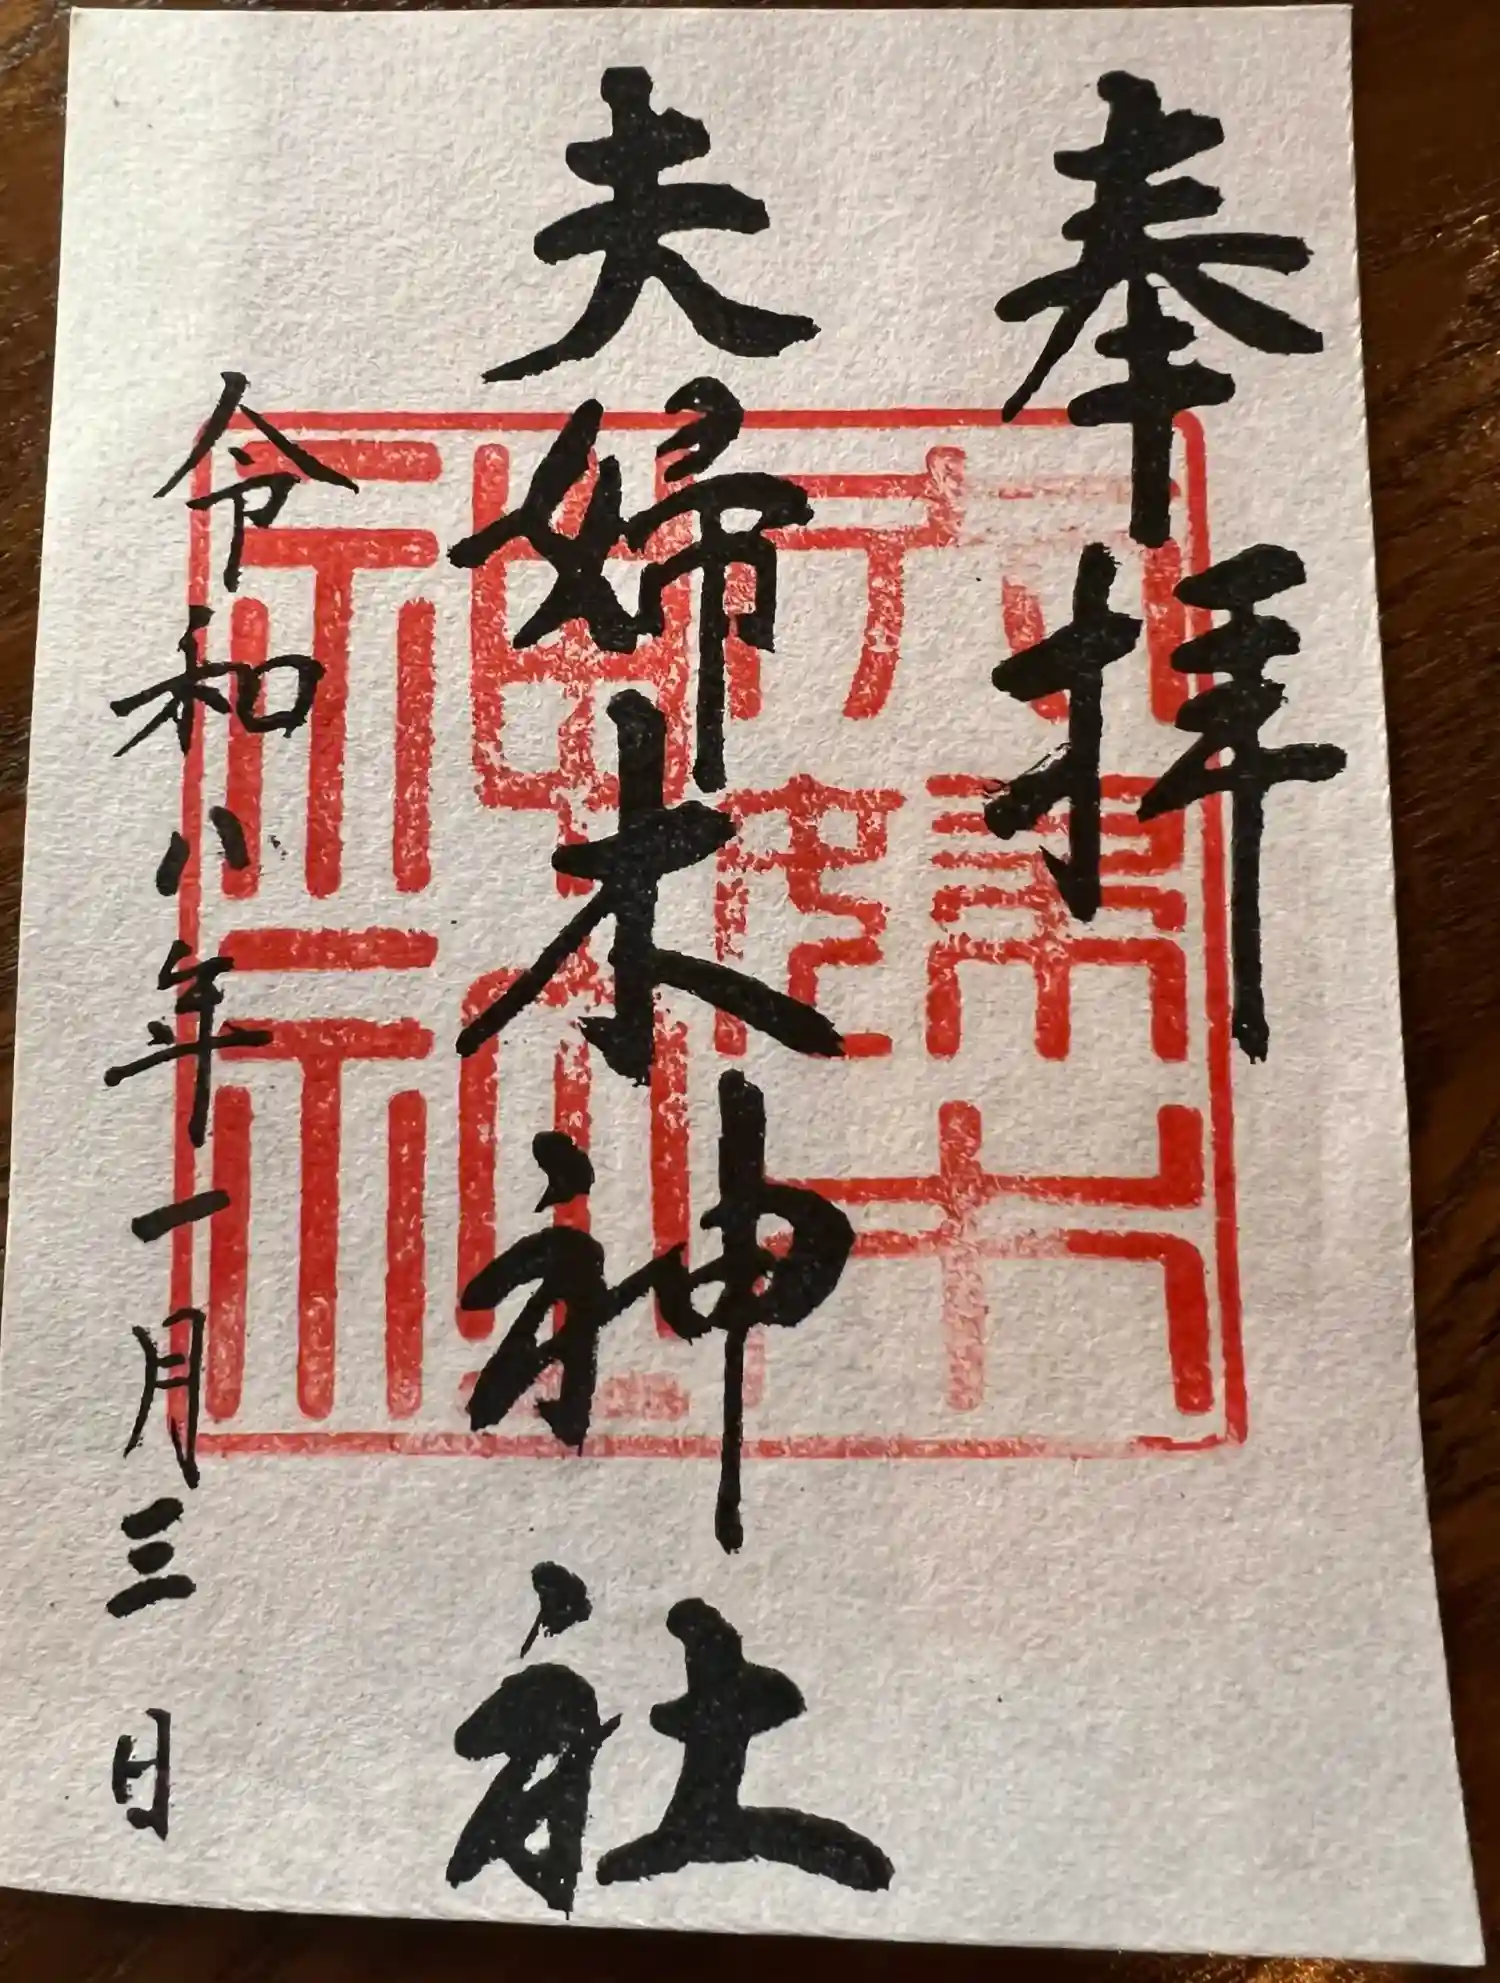 奉拝
夫婦木神社
令和八年一月三日